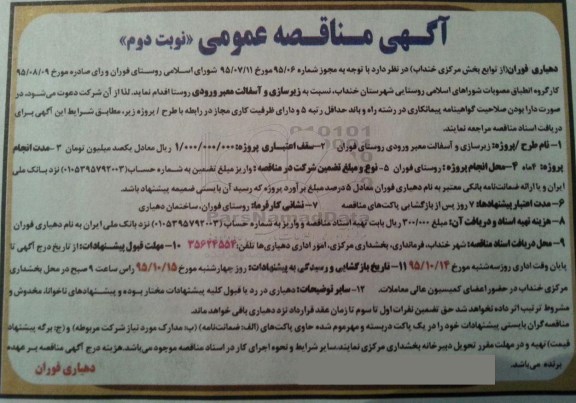 آگهی مناقصه عمومی «نوبت دوم»
دهیاری فوران(از توابع بخش مرکزی خنداب) در نظر دارد با توجه به مجوز شماره ۹۵/۰۶ مورخ ۹۵/۰۷/۱۱ شورای اسلامی روستای فوران و رای صادره مورخ ۹۵/۰۸/۰۹
کارگروه انطباق مصوبات شوراهای اسلامی روستایی شهرستان خنداب، نسبت به زیرسازی و آسفالت معبر ورودی روستا اقدام نماید. لذا از آن شرکت دعوت می‌شود، در
صورت دارا بودن صلاحیت گواهینامه پیمانکاری در رشته راه و باند حداقل رتبه ۵ و دارای ظرفیت کاری مجاز در رابطه با طرح / پروژه زیر، مطابق شرایط این آگهی برای
دریافت اسناد مناقصه مراجعه نمایند.
۱- نام طرح /پروژه: زیرسازی و آسفالت معبر ورودی روستای فوران ۲- سقف اعتباری پروژه: ۱/۰۰۰/۰۰۰/۰۰۰ ریال معادل یکصد میلیون تومان ۳- مدت انجام
پروژه: ۴ماه ۴- محل انجام پروژه: روستای فوران ۵- نوع و مبلغ تضمین شرکت در مناقصه: واریز مبلغ تضمین به شماره حساب(۰۱۰۵۳۹۵۷۹۲۰۰۳) نزد بانک ملی
ایران و یا ارائه ضمانتنامه بانکی معتبر به نام دهیاری فوران معادل ۵ درصد مبلغ برآورد پروژه که رسید آن بایستی ضمیمه پیشنهاد باشد.
۶- مدت اعتبار پیشنهادها: ۷ روز پس از بازگشایی پاکت‌های مناقصه ۷- نشانی کارفرما: روستای فوران، ساختمان دهیاری
۸- هزینه تهیه اسناد و دریافت آن: مبلغ ۳۰۰/۰۰۰ ریال بابت تهیه اسناد مناقصه و واریز به شماره حساب (۰۱۰۵۳۹۵۷۹۲۰۰۳) نزد بانک ملی ایران به نام دهیاری فوران
۹- محل دریافت اسناد مناقصه: شهر خنداب، فرمانداری، بخشداری مرکزی، امور اداری دهیاری‌ها تلفن: ۳۵۶۲۴۵۵۴ ۱۰- مهلت قبول پیشنهادات: از تاریخ درج آگهی تا
پایان وقت اداری روز سه‌شنبه مورخ ۹۵/۱۰/۱۴ ۱۱- تاریخ بازگشایی و رسیدگی به پیشنهادات: روز چهارشنبه مورخ ۹۵/۱۰/۱۵ راس ساعت ۹ صبح در محل بخشداری
مرکزی خنداب در حضور اعضای کمیسیون عالی معاملات. ۱۲- سایر توضیحات: دهیاری در رد یا قبول کلیه پیشنهادات مختار بوده و پیشنهادهای ناخوانا، مخدوش و
مشروط ترتیب اثر داده نخواهد شد حق تضمین نفرات اول تا سوم تا زمان عقد قرارداد نزد دهیاری باقی خواهد ماند.
مناقصه گران بایستی پیشنهادات خود را در یک پاکت دربسته و مهرموم شده حاوی پاکت‌های (الف: ضمانت‌نامه) (ب: مدارک مورد نیاز شرکت مربوطه) و (ج: برگه پیشنهاد
قیمت) تهیه و در مهلت مقرر تحویل دبیرخانه بخشداری مرکزی نمایند. سایر شرایط و نحوه اجرای کار در اسناد مناقصه موجود می‌باشد. هزینه درج آگهی مناقصه بر عهده
برنده می‌باشد.
دهیاری فوران
ParsNamadData